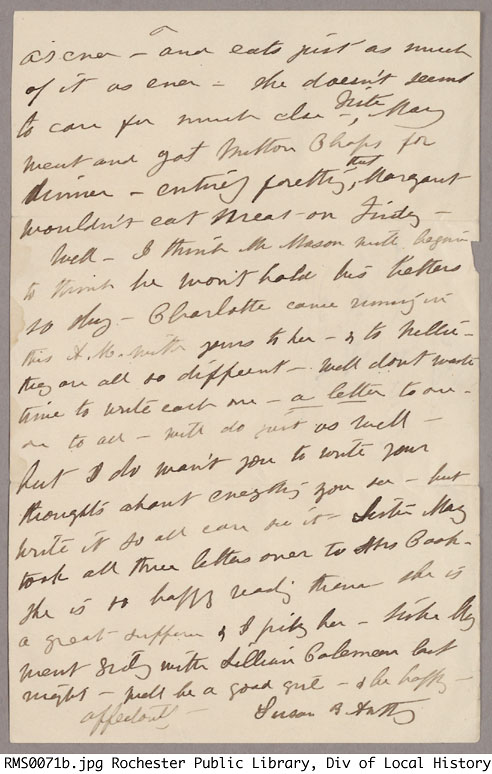 as ever - and eats just as much
of it as ever - she doesn't seem
to care for much else - Sister Mary
went and got Mutton Chops for
dinner - entirely forgetting, that Margaret
wouldn't eat meat on Friday -
Well - I think Mr Mason will begin
to think he won't hold his letters
so - Charlotte came running in
this A.M. with yours to her - & to Nellie -
they are all so different - well don't waste
time to write each one - a letter to one -
or to all - will do just as well -
but I do want you to write your
thoughts about everything you see - but
write it so all can see it - Sister Mary
took all three letters over to Mrs Cook -
She is so happy reading them she is
a great sufferer & I pity her - Sister Mary
went with Lillian Coleman last
night - well be a good girl - & be happy -
affectionately - Susan B. Anthony
RMS0071b.jpg Rochester Public Library, Div of Local History